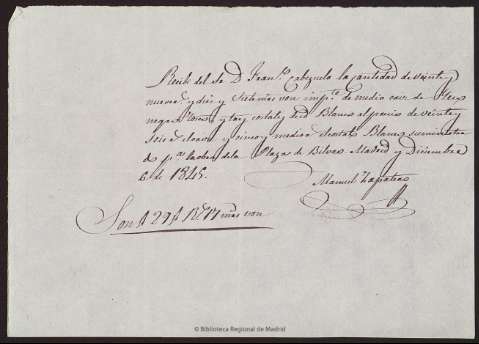 Recibí del Sr D. Franco Cabezuela la cantidad de veinte y
nueve y diez y siete mrs von impte de medio caiz de Yeso
negro
costal y de id Blanco al precio de veinte y
seis el caiz y cinco y medio el costal Blanco suministra
do pa la obra de la Plaza de Bilbao Madrid y Diciembre
6 de 1845.
Manuel Zapatero
Son 29 17 mrs von
© Biblioteca Regional de Madrid